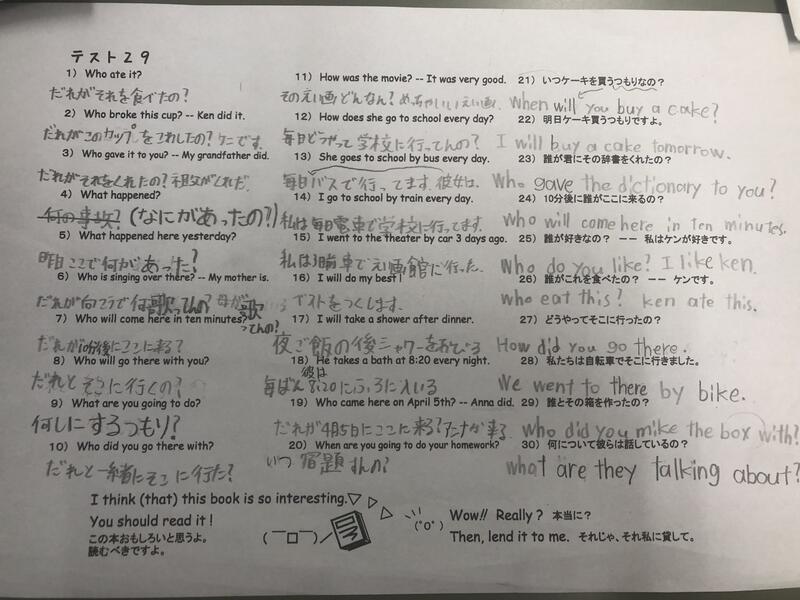 テスト29
1) Who ate it?
だれがそれを食べたの？
2) Who broke this cup? -- Ken did it.
だれがこのカップをこわしたの？ケンです。
3) Who gave it to you? -- My grandfather did.
だれがそれをくれたの？祖父がくれた。
4) What happened?
(なにがあったの?)
5) What happened here yesterday?
昨日ここで何があった？
6) Who is singing over there? -- My mother is.
だれが向こうで歌ってんの？母が歌ってんの?
7) Who will come here in ten minutes?
だれが10分後にここに来る？
8) Who will go there with you?
だれとそこに行くの？
9) What are you going to do?
何しにするつもり?
10) Who did you go there with?
だれと一緒にそこに行た？
11) How was the movie? -- It was very good.
そのえい画どんなん？めっちゃいいえい画.
12) How does she go to school every day?
毎日どうやって学校に行ってんの？
13) She goes to school by bus every day.
毎日バスで行ってます。彼女は.
14) I go to school by train every day.
私は毎日電車で学校に行ってます.
15) I went to the theater by car 3 days ago.
私は3日前車でえい画館に行った.
16) I will do my best!
ベストをつくします.
17) I will take a shower after dinner.
夜ご飯の後シャワーをあびる
18) He takes a bath at 8:20 every night.
彼は毎ばん8:20にふろに入いる
19) Who came here on April 5th? -- Anna did.
だれが4月5日にここに来る？アナが来る.
20) When are you going to do your homework?
いつ宿題すんの？
21) いつケーキを買うつもりなの？
When will you buy a cake?
22) 明日ケーキ買うつもりですよ。
I will buy a cake tomorrow.
23) 誰が君にその辞書をくれたの？
Who gave the dictionary to you?
24) 10分後に誰がここに来るの？
Who will come here in ten minutes.
25) 誰が好きなの？ -- 私はケンが好きです。
Who do you like? I like ken.
26) 誰がこれを食べたの？ -- ケンです。
who eat this? ken ate this.
27) どうやってそこに行ったの？
How did you go there.
28) 私たちは自転車でそこに行きました。
We went to there by bike.
29) 誰とその箱を作ったの？
who did you mike the box with?
30) 何について彼らは話しているの？
what are they talking about?
I think (that) this book is so interesting.
You should read it!
この本おもしろいと思うよ。
読むべきですよ。
(￣ロ￣)ノ
(°o°)
Wow!! Really? 本当に？
Then, lend it to me. それじゃ、それ私に貸して。